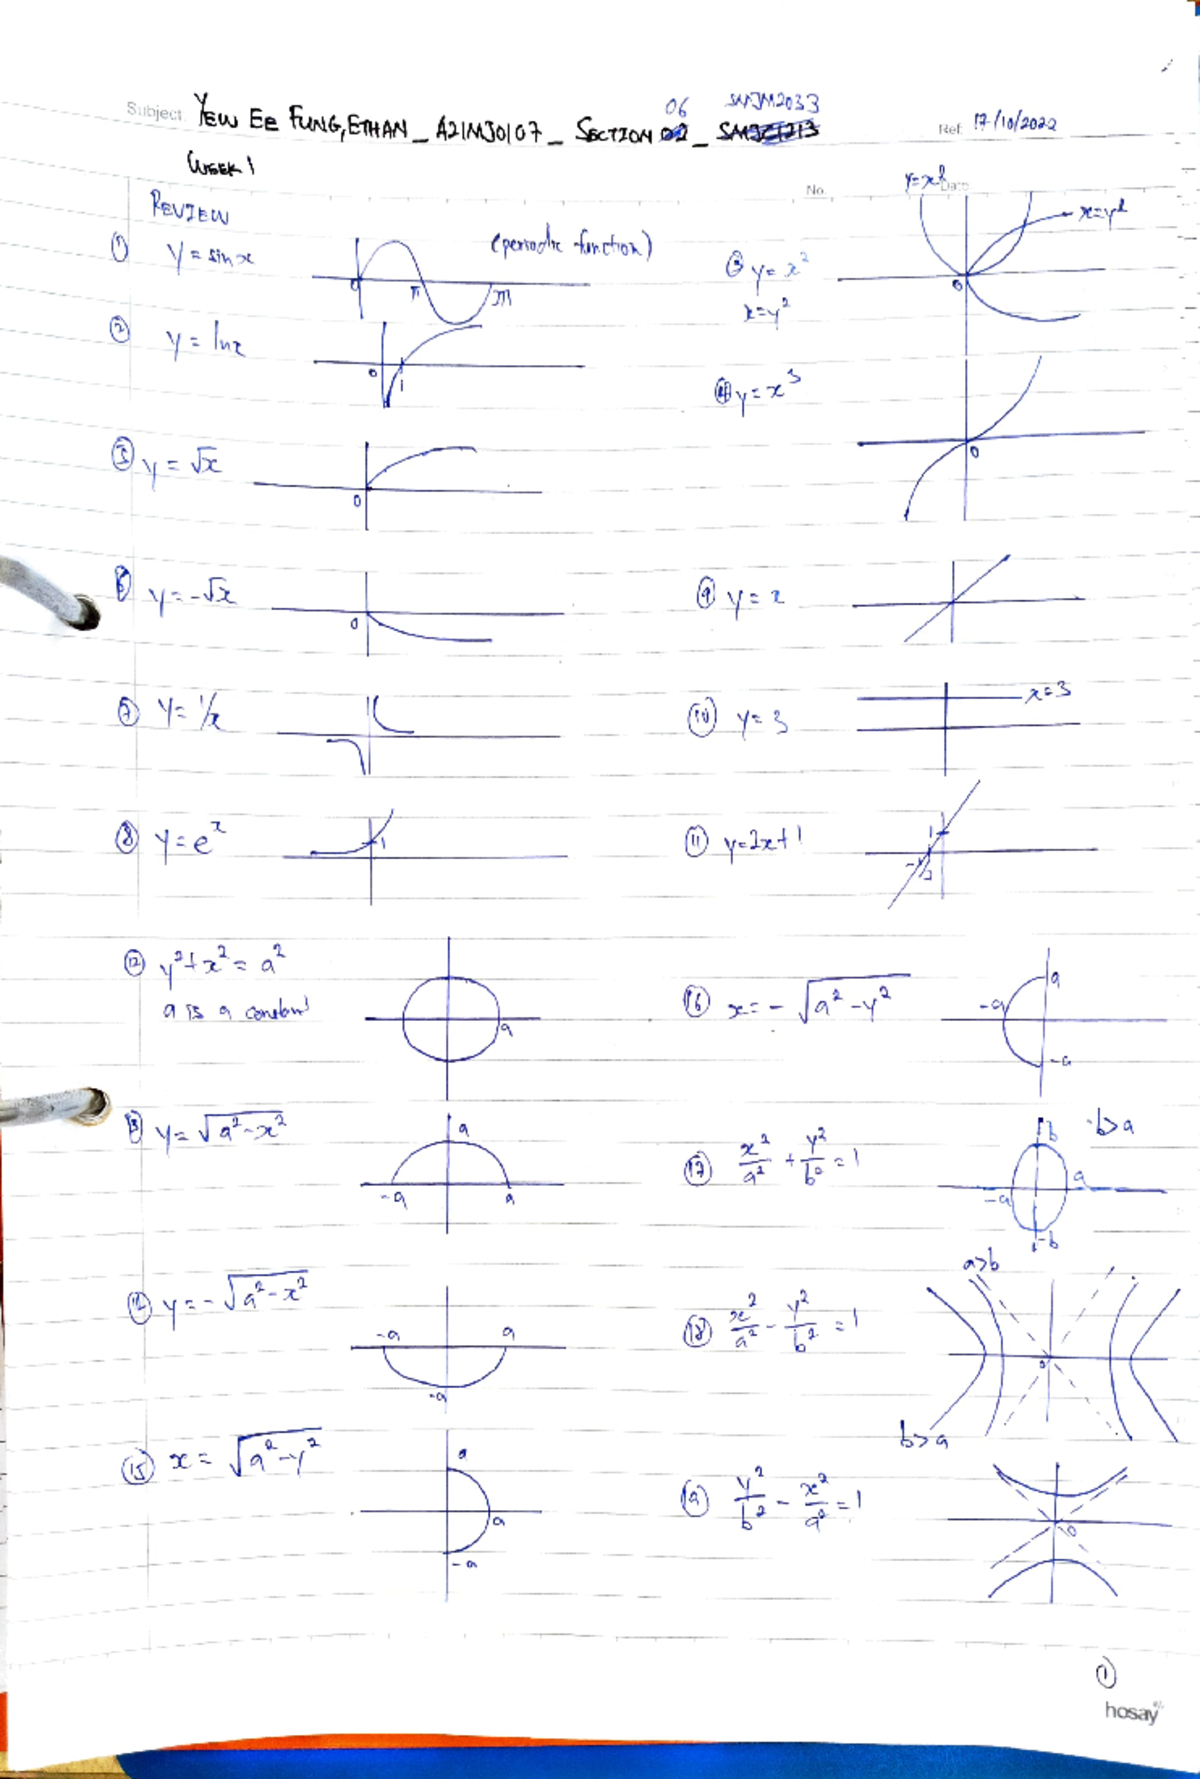 Subject: YEW EE FUNG, ETHAN _ A21MJ0107 _ SECTION 02 06 _ SMJC1213 SMJM2033
Ref: 17/10/2022
WEEK 1
No.
Date
REVIEW
① y = sin x
(periodic function)
0 π 2π
② y = ln x
0 1
③ y = x²
x = y²
y = x²
x = y²
0
④ y = x³
0
⑤ y = √x
0
⑥ y = -√x
0
⑦ y = 1/x
⑧ y = e^x
1
⑨ y = x
⑩ y = 3
x = 3
⑪ y = 2x + 1
1
-1/2
⑫ y² + x² = a²
a is a constant
a
⑬ y = √(a² - x²)
a
-a a
⑭ y = -√(a² - x²)
-a a
-a
⑮ x = √(a² - y²)
a
a
-a
⑯ x = -√(a² - y²)
a
-a
-a
⑰ x²/a² + y²/b² = 1
b b>a
-a a
-b
⑱ x²/a² - y²/b² = 1
a>b
0
b>a
⑲ y²/b² - x²/a² = 1
0
①
hosay